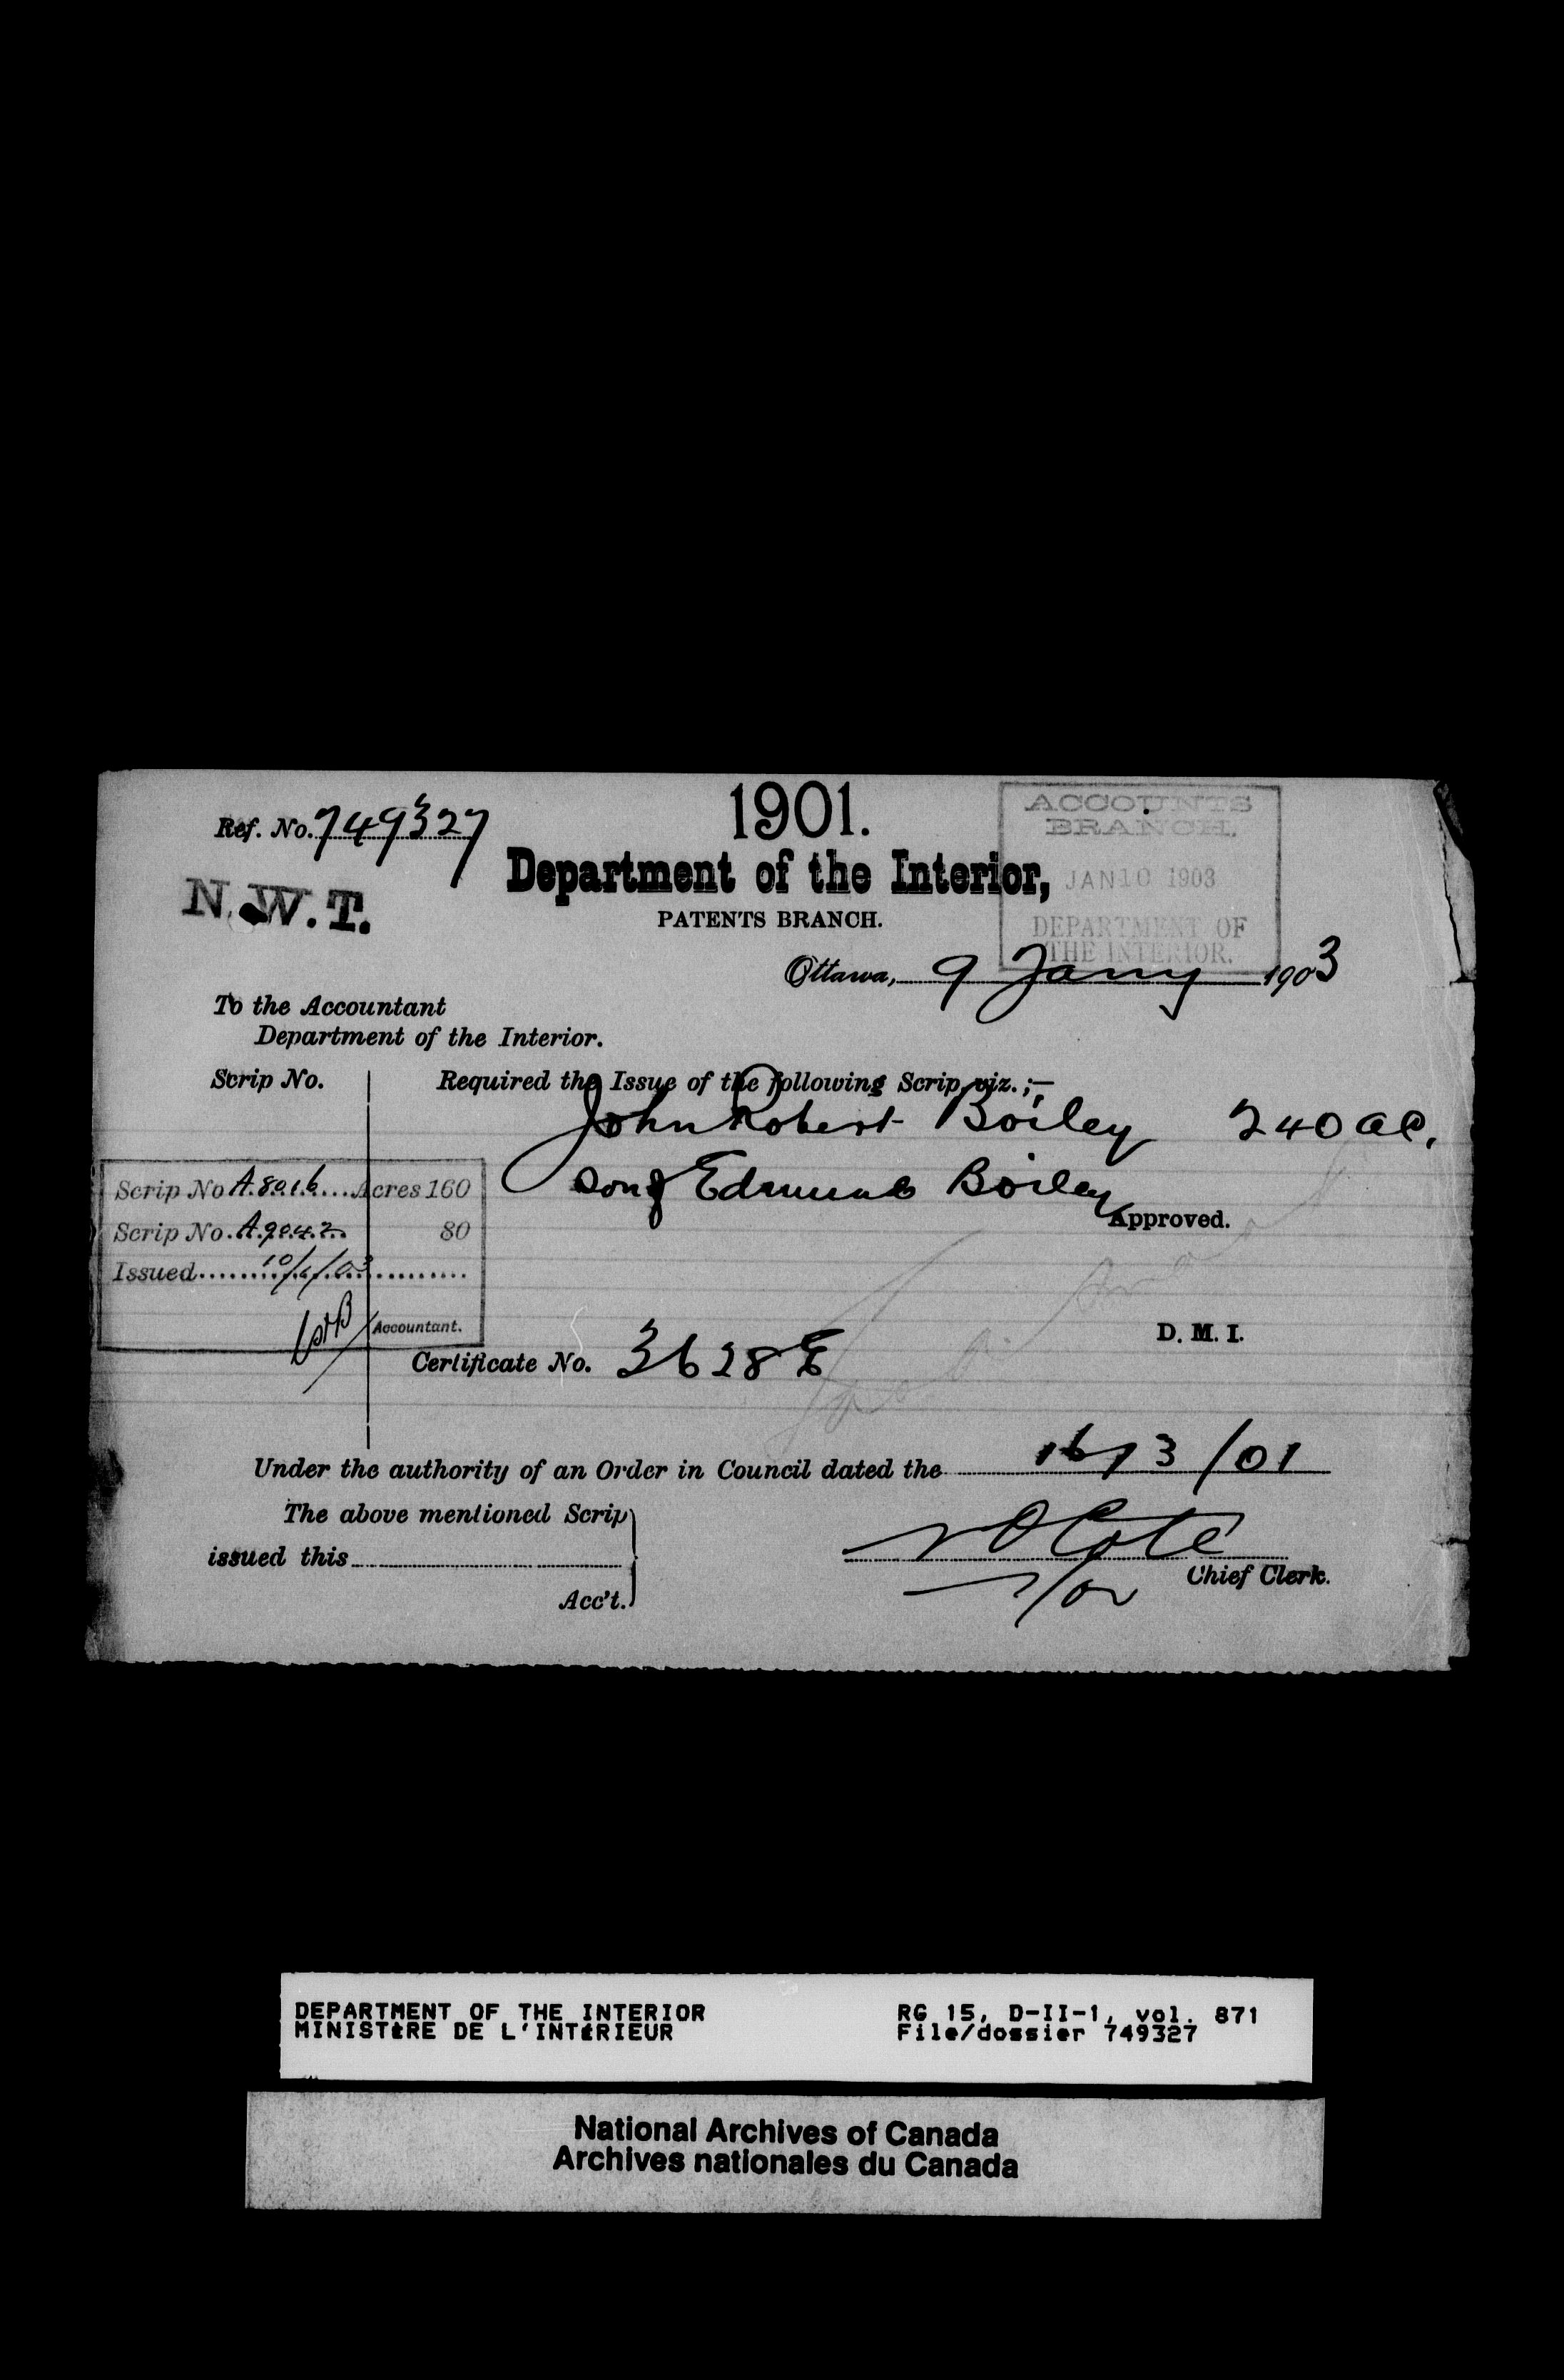 1901.
Ref. No. 749327
ACCOUNTS
BRANCH.
JAN 10 1903
DEPARTMENT OF
THE INTERIOR.
Department of the Interior,
N.W.T.
PATENTS BRANCH.
Ottawa, 9 Jany 1903
To the Accountant
Department of the Interior.
Scrip No.
Required the Issue of the following Scrip, viz.;—
John Robert Boiley 240 ac.
Son of Edmund Boiley
Approved.
Scrip No A.8016 Acres 160
Scrip No. A.9042 80
Issued 10/1/03
Accountant.
D. M. I.
Certificate No. 3628 E
Under the authority of an Order in Council dated the 16/3/01
The above mentioned Scrip
issued this
Acc't.
N O Cote
Chief Clerk.
DEPARTMENT OF THE INTERIOR RG 15, D-II-1, vol. 871
MINISTÈRE DE L'INTÉRIEUR File/dossier 749327
National Archives of Canada
Archives nationales du Canada